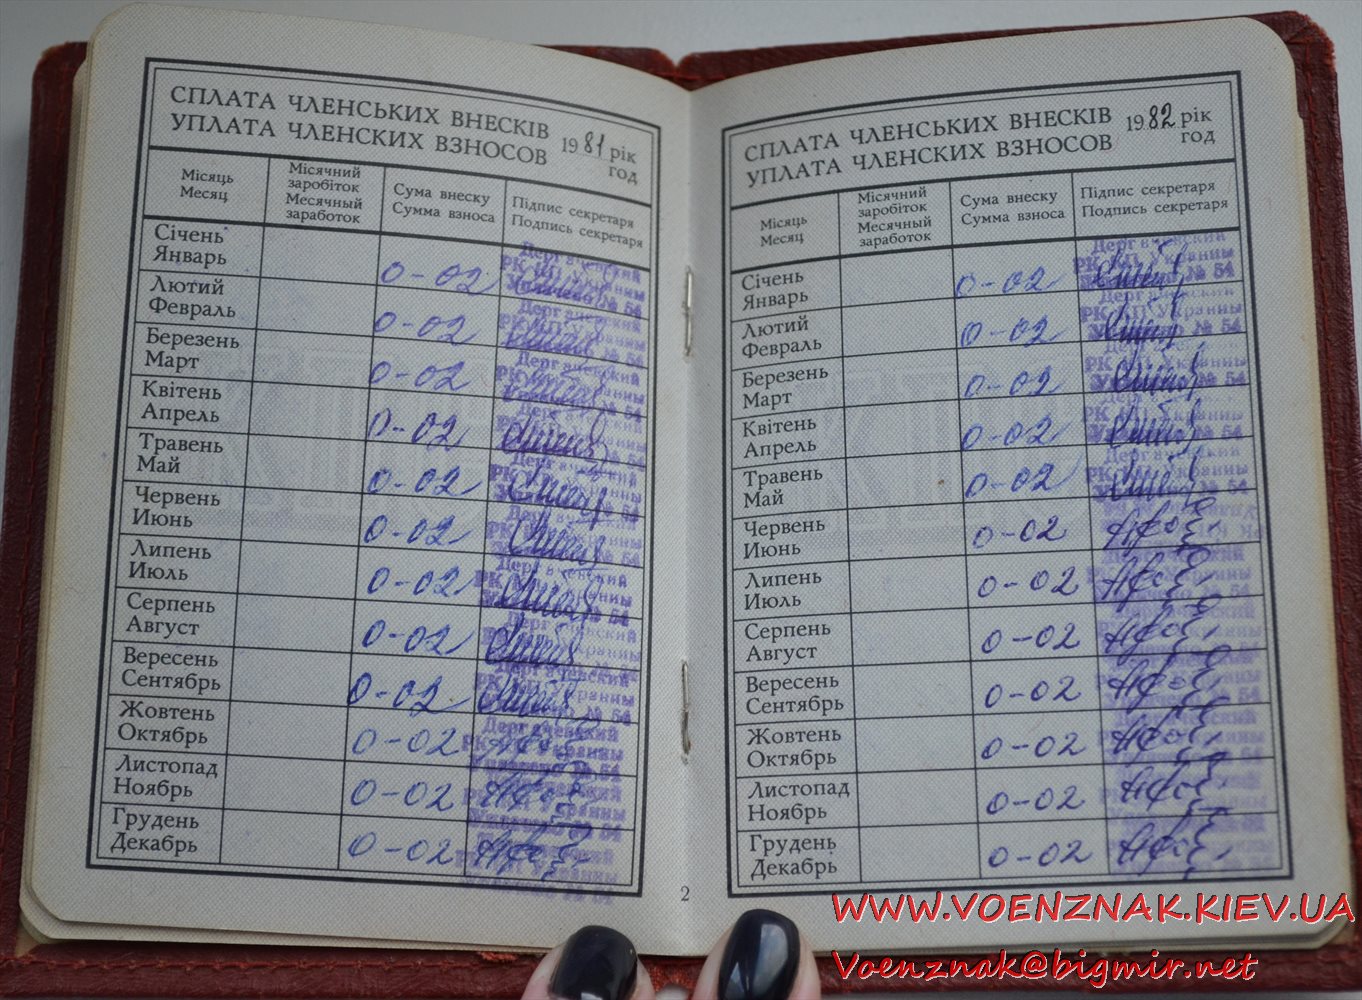 СПЛАТА ЧЛЕНСЬКИХ ВНЕСКІВ
УПЛАТА ЧЛЕНСКИХ ВЗНОСОВ
1981 рік
год
Місяць
Месяц
Місячний
заробіток
Месячный
заработок
Сума внеску
Сумма взноса
Підпис секретаря
Подпись секретаря
Січень
Январь
0-02
Лютий
Февраль
0-02
Березень
Март
0-02
Квітень
Апрель
0-02
Травень
Май
0-02
Червень
Июнь
0-02
Липень
Июль
0-02
Серпень
Август
0-02
Вересень
Сентябрь
0-02
Жовтень
Октябрь
0-02
Листопад
Ноябрь
0-02
Грудень
Декабрь
0-02
2
СПЛАТА ЧЛЕНСЬКИХ ВНЕСКІВ
УПЛАТА ЧЛЕНСКИХ ВЗНОСОВ
1982 рік
год
Місяць
Месяц
Місячний
заробіток
Месячный
заработок
Сума внеску
Сумма взноса
Підпис секретаря
Подпись секретаря
Січень
Январь
0-02
Лютий
Февраль
0-02
Березень
Март
0-02
Квітень
Апрель
0-02
Травень
Май
0-02
Червень
Июнь
0-02
Липень
Июль
0-02
Серпень
Август
0-02
Вересень
Сентябрь
0-02
Жовтень
Октябрь
0-02
Листопад
Ноябрь
0-02
Грудень
Декабрь
0-02
WWW.VOENZNAK.KIEV.UA
Voenznak@bigmir.net